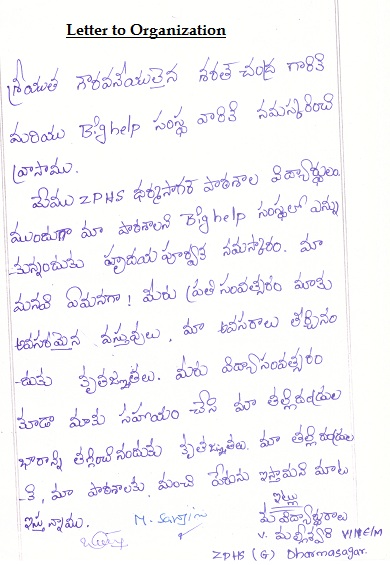 Letter to Organization
శ్రీయుత గౌరవనీయులైన శరత్ చంద్ర గారికి
మరియు Bighelp సంస్థ వారికి నమస్కరించి
వ్రాసాము.
మేము ZPHS ధర్మసాగర్ పాఠశాల విద్యార్థులం
ముందుగా మా పాఠశాలని Bighelp సంస్థలో ఎన్ను
-కున్నందుకు హృదయ పూర్వక నమస్కారం. మా
మనవి ఏమనగా! మీరు ప్రతి సంవత్సరం మాకు
అవసరమైన వస్తువులు, మా అవసరాలు తీర్చినం
-దుకు కృతజ్ఞతలు. మీరు విద్యాసంవత్సరం
కూడా మాకు సహాయం చేసి మా తల్లిదండ్రుల
భారాన్ని తగ్గించినందుకు కృతజ్ఞతలు. మా తల్లిదండ్రుల
-కి, మా పాఠశాలకు మంచి పేరును ఇస్తామని మాట
ఇస్తున్నాము.
ఇట్లు
మీ విద్యార్థురాలు
M. Sarojini
V. మల్లీశ్వరి VIII E/M
ZPHS (G) Dharmasagar.